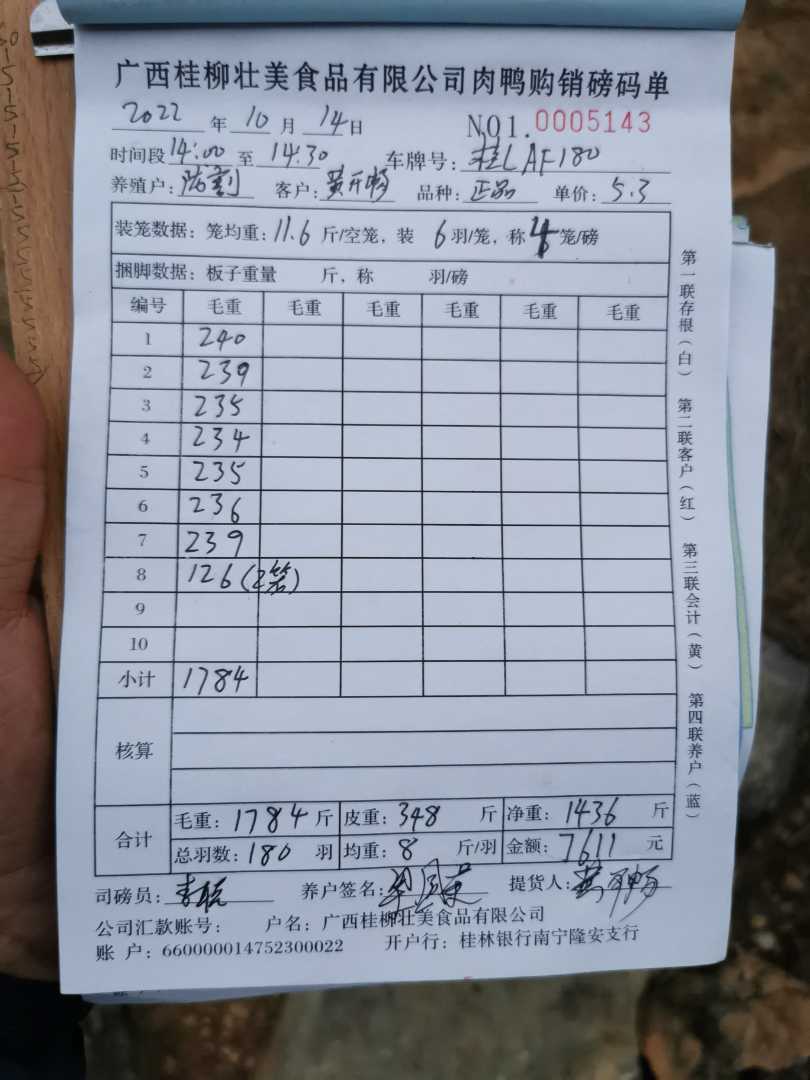 广西桂柳壮美食品有限公司肉鸭购销磅码单
2022 年 10 月 14 日 NO1. 0005143
时间段 14:00 至 14.30 车牌号: 桂L AF180
养殖户: 客户: 黄开畅 品种: 正品 单价: 5.3
装笼数据: 笼均重: 11.6 斤/空笼, 装 6 羽/笼, 称 4 笼/磅
捆脚数据: 板子重量 斤, 称 羽/磅
编号 毛重 毛重 毛重 毛重 毛重 毛重
1 240
2 239
3 235
4 234
5 235
6 236
7 239
8 126 (2笼)
9
10
小计 1784
核算
合计 毛重: 1784 斤 皮重: 348 斤 净重: 1436 斤
总羽数: 180 羽 均重: 8 斤/羽 金额: 7611 元
司磅员: 养户签名: 提货人:
公司汇款账号: 户名: 广西桂柳壮美食品有限公司
账 户: 660000014752300022 开户行: 桂林银行南宁隆安支行
第一联存根(白) 第二联客户(红) 第三联会计(黄) 第四联养户(蓝)